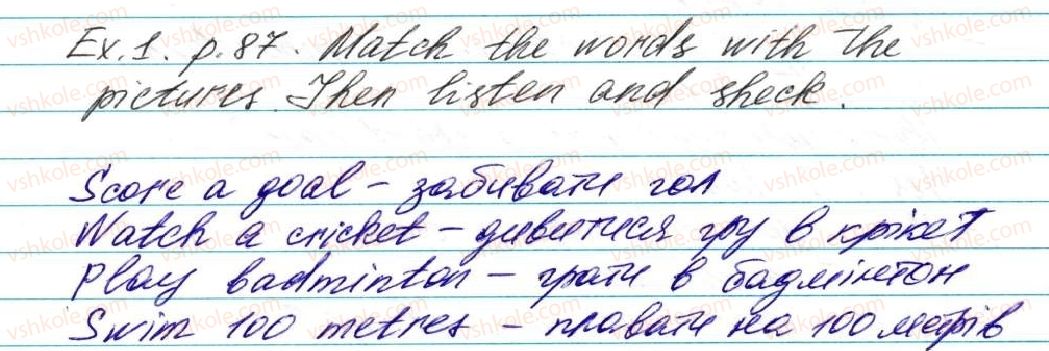 Ex.1. p.87. Match the words with the
pictures. Then listen and sheck.
Score a goal – забивати гол
Watch a cricket – дивитися гру в крікет
Play badminton – грати в бадмінтон
Swim 100 metres – плавати на 100 метрів